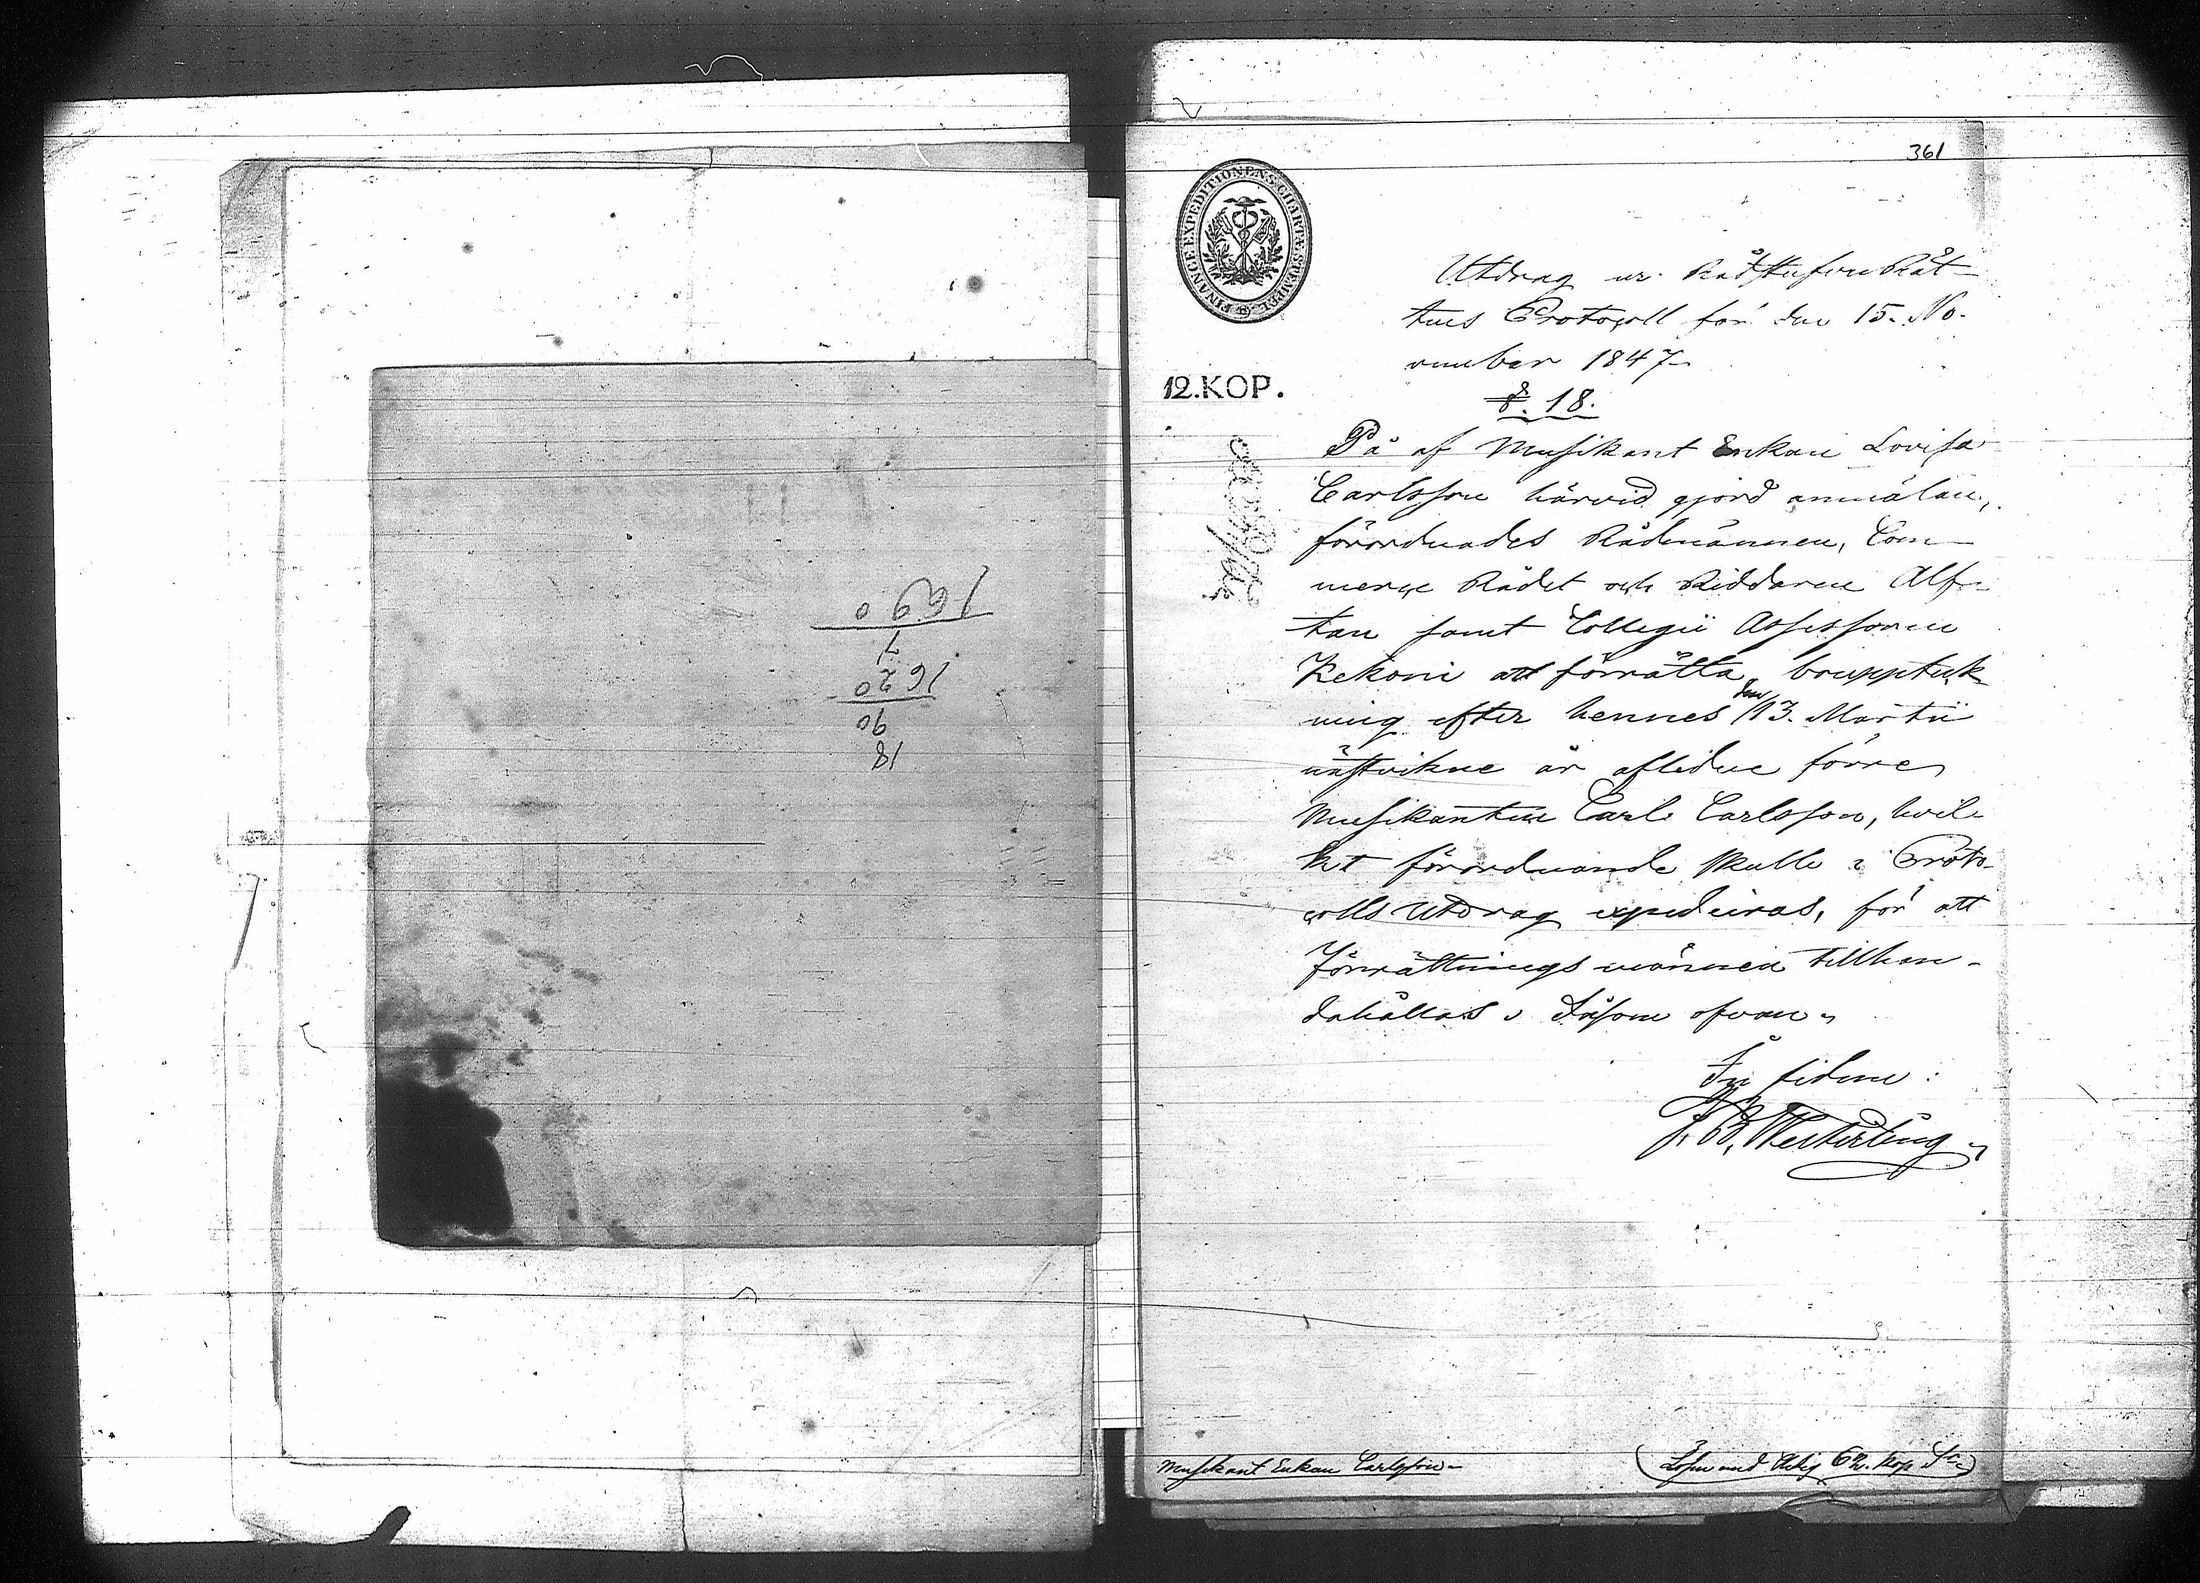 18
90
1620
7
1690
361
FINANCE EXPEDITIONENS CHARTÆ STEMPEL
12.KOP.
Utdrag ur Rådstufvu Rät-
tens Protocoll för den 15. No-
vember 1847.
§. 18.
På af Musikant Enkan Lovisa
Carlsson härvid gjord anmälan,
förordnades Rådmännen, Com-
merce Rådet och Riddaren Alf-
tan samt Collegii Assessoren
Kekoni att förrätta bouppteck-
ning efter hennes den 13. Martii
nästvikne år aflidne förre
Musikanten Carl Carlsson, hvil-
ket förordnande skulle i Proto-
colls Utdrag expedieras, för att
Förrättningsmännen tillhan-
dahållas. Såsom ofvan.
In fidem:
Westerling
Musikant Enkan Carlsson
Lösen med Chtg 62. kop Sr